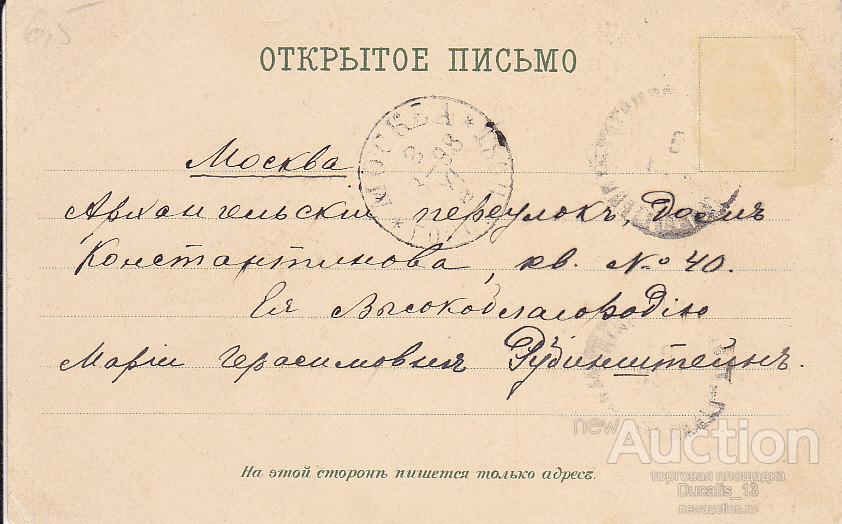 6,5
ОТКРЫТОЕ ПИСЬМО
МОСКВА
Москва
Архангельский переулокъ, Домъ
Константинова, кв. № 40.
Ея Высокоблагородію
Маріи Герасимовнѣ Рубинштейнъ.
На этой сторонѣ пишется только адресъ.
newAuction
торговая площадка
Ducalis_13
newauction.ru